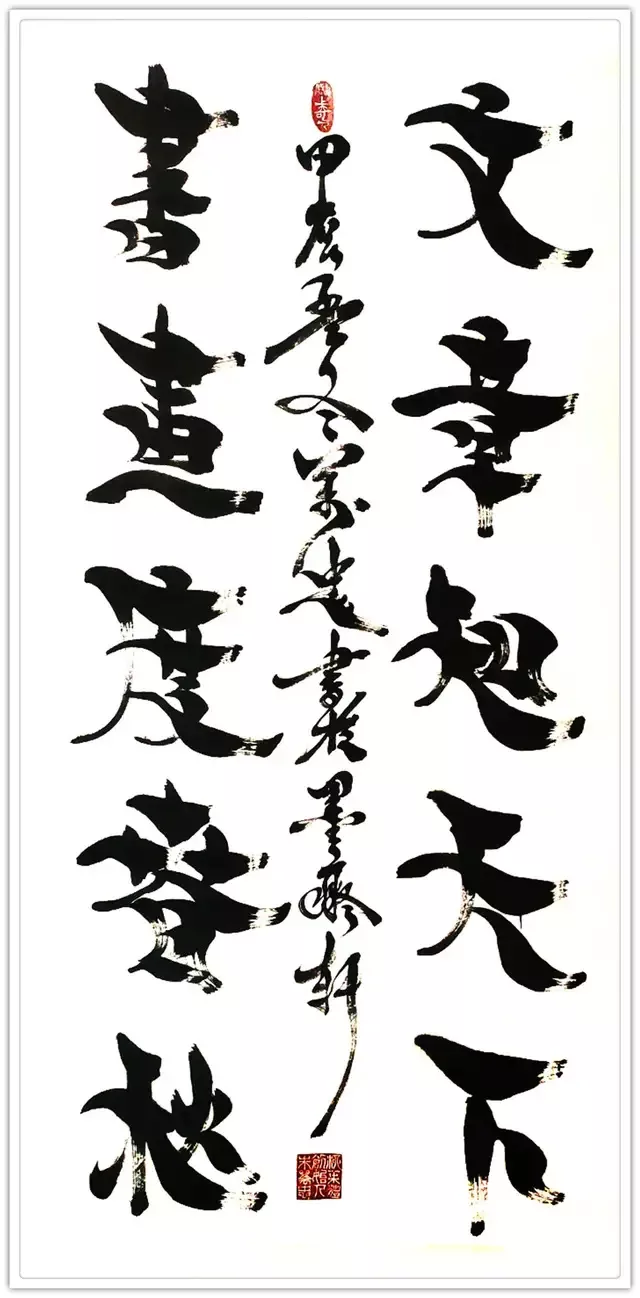 文章知天下
書畫度春秋
甲辰冬萬書於墨軒